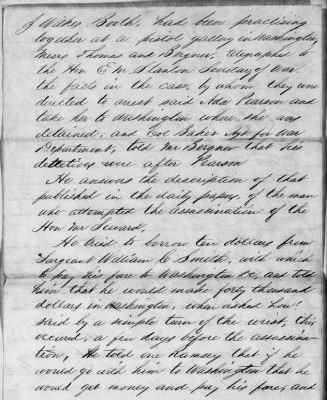 of Wilkes Booth, had been practising
together at a pistol gallery in Washington,
Messrs Thomas and Bergner, telegraphed to
the Hon E M Stanton Secretary of War
the facts in the case, by whom they were
directed to arrest said Ada Pearson and
take her to Washington where she was
detained; and Col Baker Agt for War
Department, told Mr Bergner that his
detectives were after Pearson
He answers the description of that
published in the daily papers, of the man
who attempted the assassination of the
Hon Mr Seward,
He tried to borrow ten dollars from
Sargeant William C Smith, with which
to pay his fare to Washington DC, and told
him that he would make forty thousand
dollars in Washington, when asked how!
said by a simple turn of the wrist, this
occured, a few days before the assassina-
tion, He told one Ramsey that if he
would go with him to Washington that he
would get money and pay his fare, and